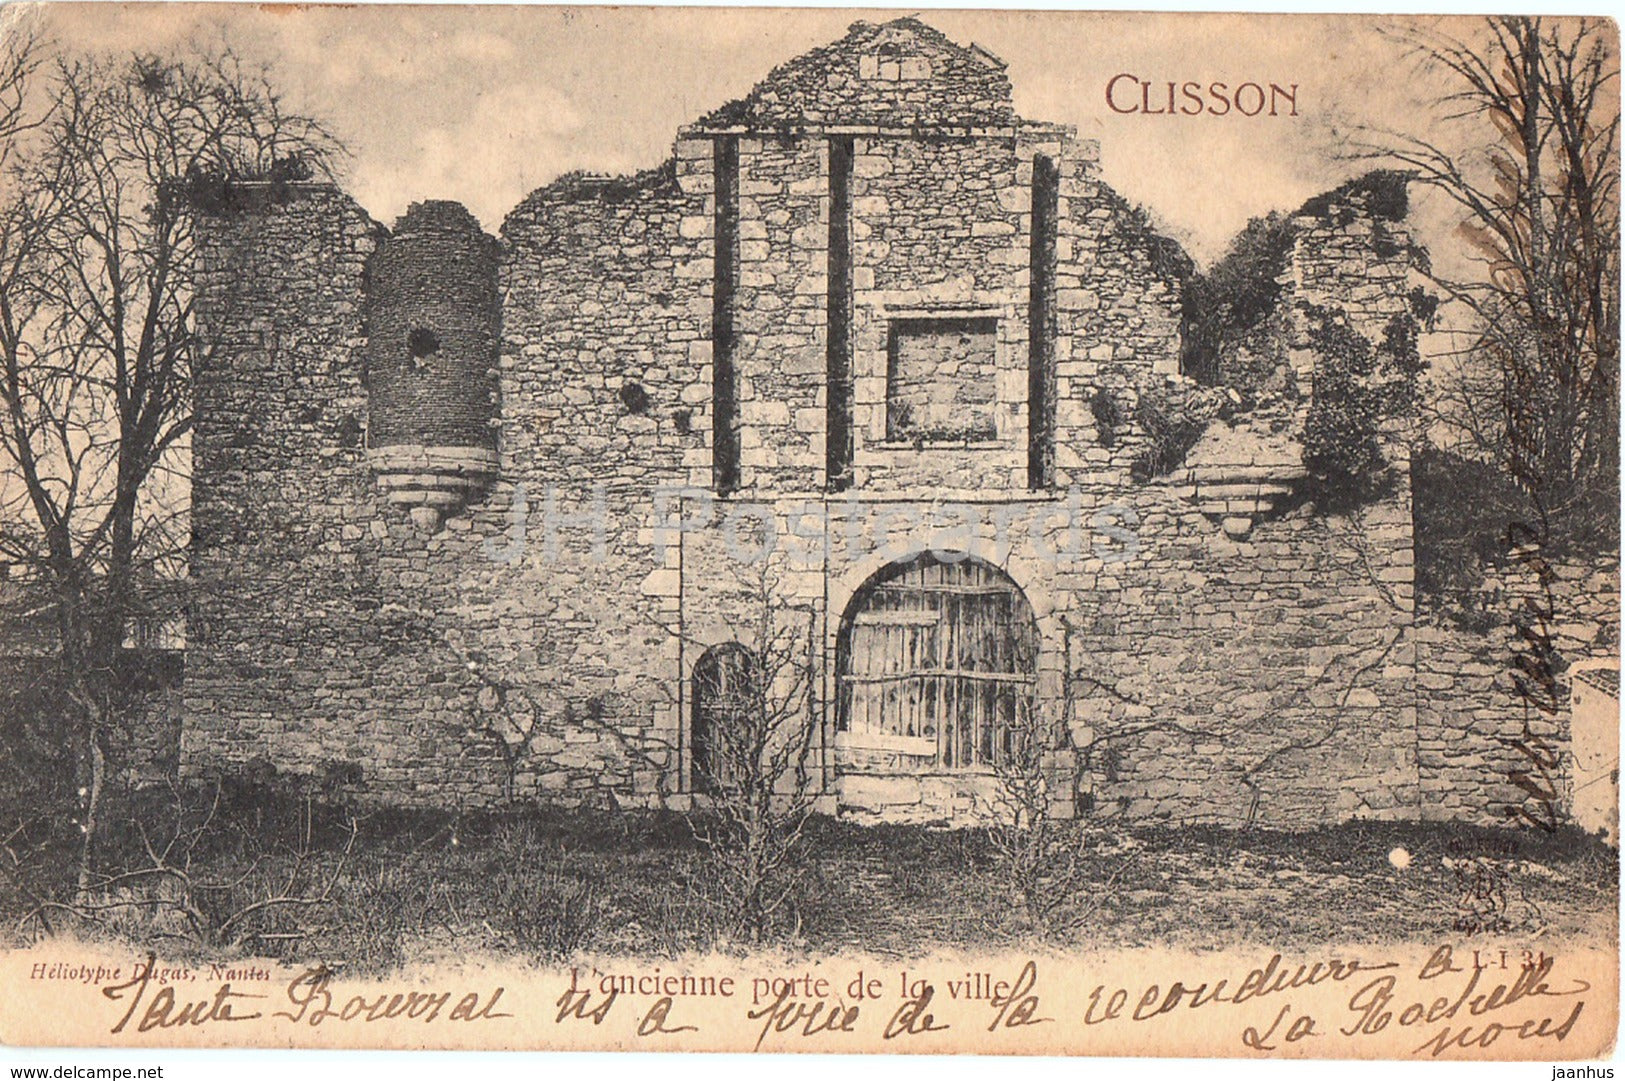 CLISSON
JH Postcards
Héliotypie Dugas, Nantes
L'ancienne porte de la ville
L-I 31
Tante Bourrat ns a prié de la reconduire à
La Rochelle
nous
Delcampe.net
jaanhus